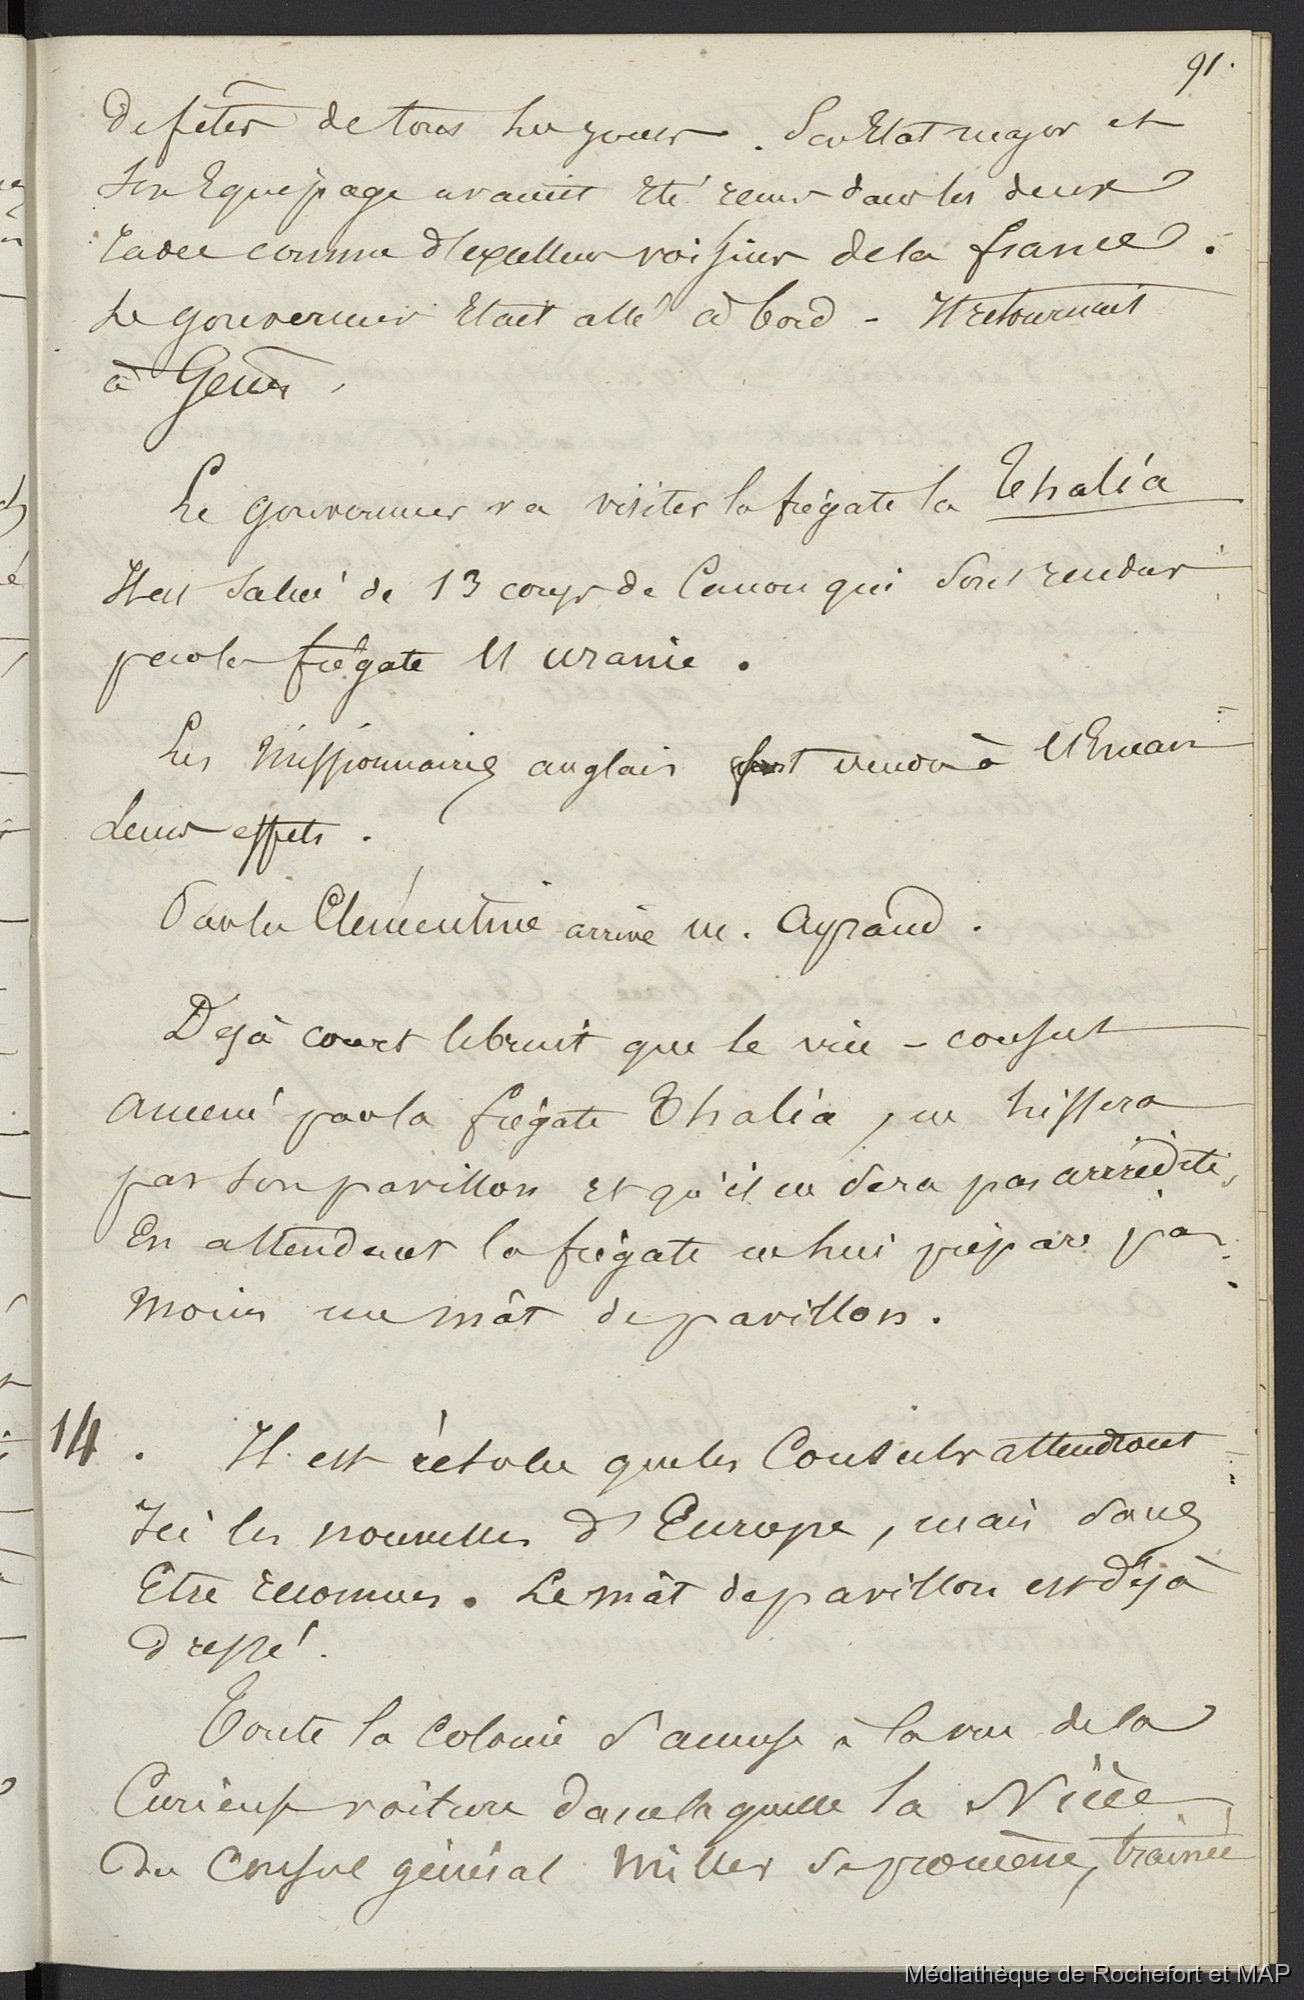 91.
De fêtes de tous les jours. Son Etat major et
son Equipage avaient Eté reçus dans les deux
rades comme d'excellens voisins de la france.
Le gouverneur Etait allé à bord - Il retournait
à Gênes.
Le gouverneur va visiter la frégate la Thalia
Il est salué de 13 coups de Canon qui sont rendus
par la frégate l'Uranie.
Les Missionnaires anglais font vendre à l'Encan
leurs effets.
Par la Clémentine arrive m. Ayraud.
Dejà court le bruit que le vice-consul
amené par la frégate Thalia, ne hissera
pas son pavillon et qu'il ne sera pas accrédité,
En attendant la frégate ne lui prépare pas
moins un mât de pavillon.
14. Il est résolu que les Consuls attendront
Ici les nouvelles d'Europe, mais sans
Etre reconnus. Le mât de pavillon est déjà
dressé.
Toute la Colonie s'amuse à la vue de la
Curieuse voiture dans laquelle la Nièce
du Consul général Miller se promène, trainée
Médiathèque de Rochefort et MAP